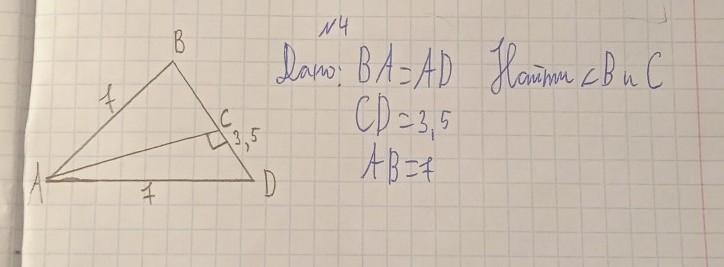 №4
Дано: BA=AD Найти <B и C
CD=3,5
AB=7
B
7
C
3,5
A
7
D